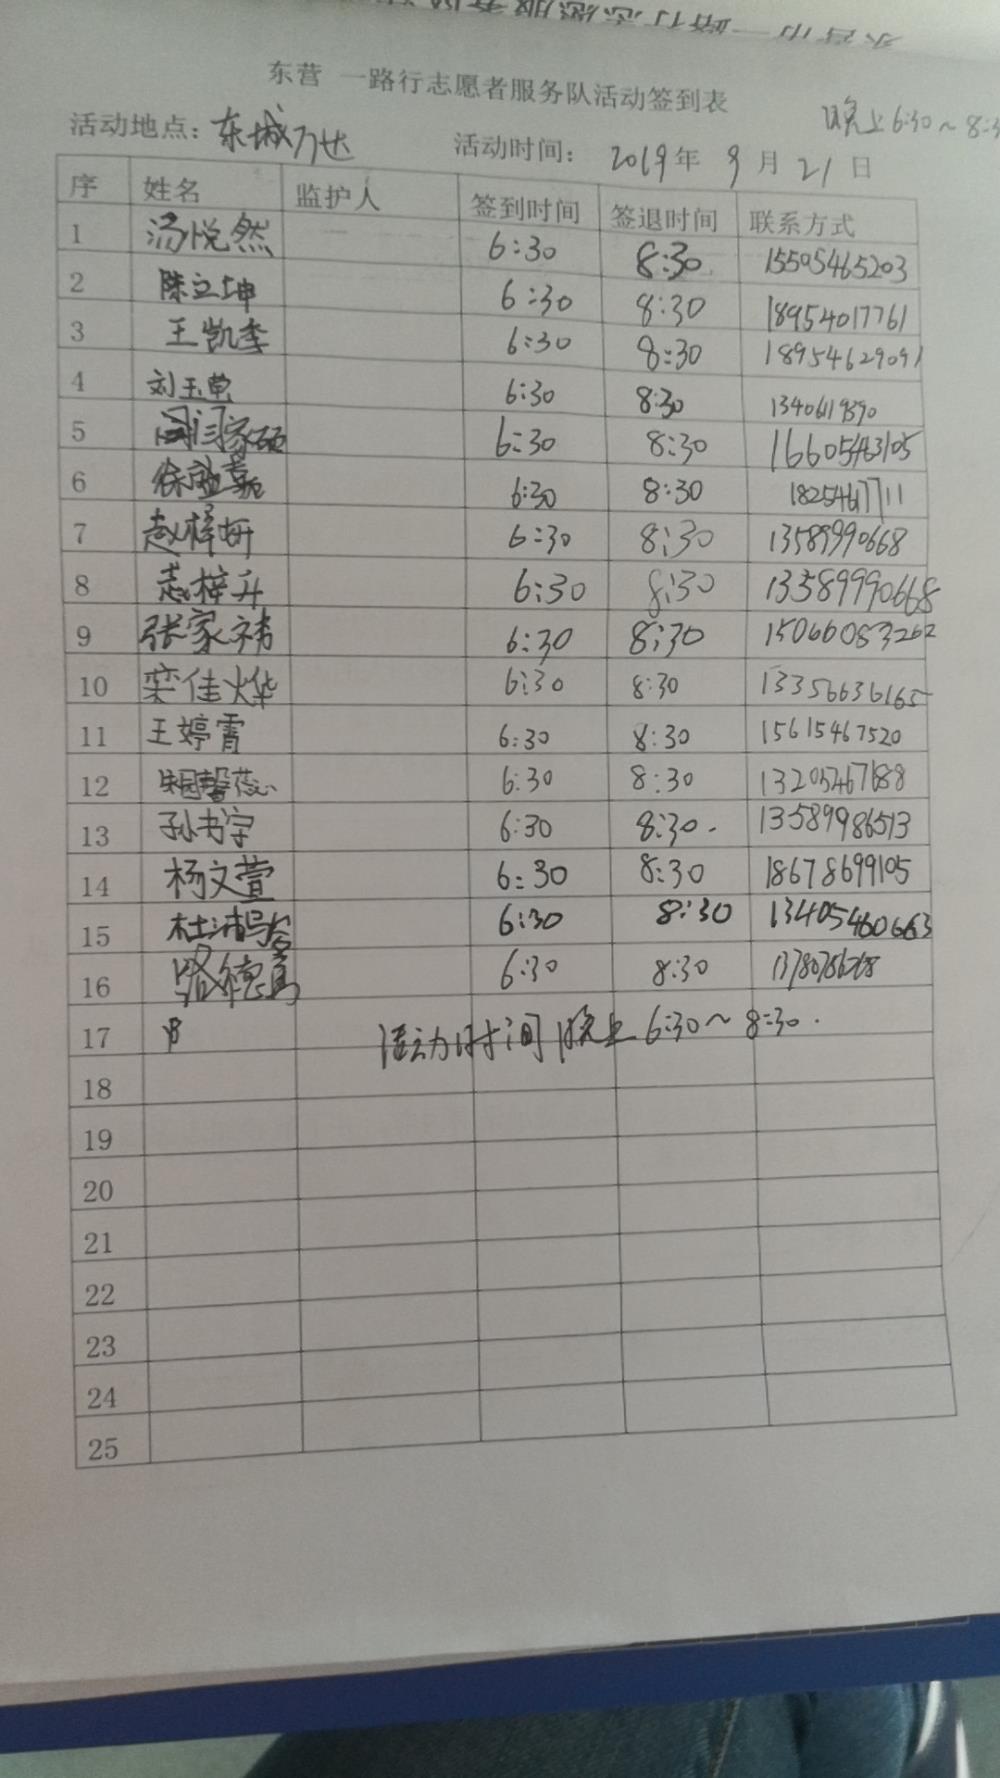 东营 一路行志愿者服务队活动签到表
晚上6:30～8:3
活动地点：东城万达 活动时间： 2019年 9月 21日
序 姓名 监护人 签到时间 签退时间 联系方式
1 汤悦然 6:30 8:30 15505465203
2 陈立坤 6:30 8:30 18954017761
3 王凯李 6:30 8:30 18954629091
4 刘玉 6:30 8:30
5 闫家硕 6:30 8:30 16605463105
6 徐 嘉 6:30 8:30 18254617711
7 赵梓妍 6:30 8:30 13589990668
8 赵梓升 6:30 8:30 13589990668
9 张家祎 6:30 8:30 15066083262
10 栾佳烨 6:30 8:30 13356636165
11 王婷霄 6:30 8:30 15615467520
12 馨蕊 6:30 8:30 13205467188
13 孙书宇 6:30 8:30. 13589986513
14 杨文萱 6:30 8:30 18678699105
15 杜 6:30 8:30 13405460663
16 路德 6:30 8:30
17 活动时间晚上6:30～8:30.
18
19
20
21
22
23
24
25